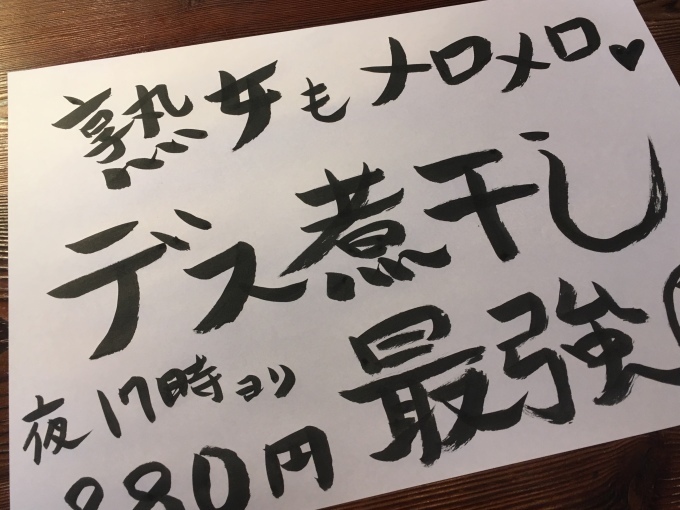 熟女もメロメロ♥
デス煮干し
最強
夜17時ヨリ
880円